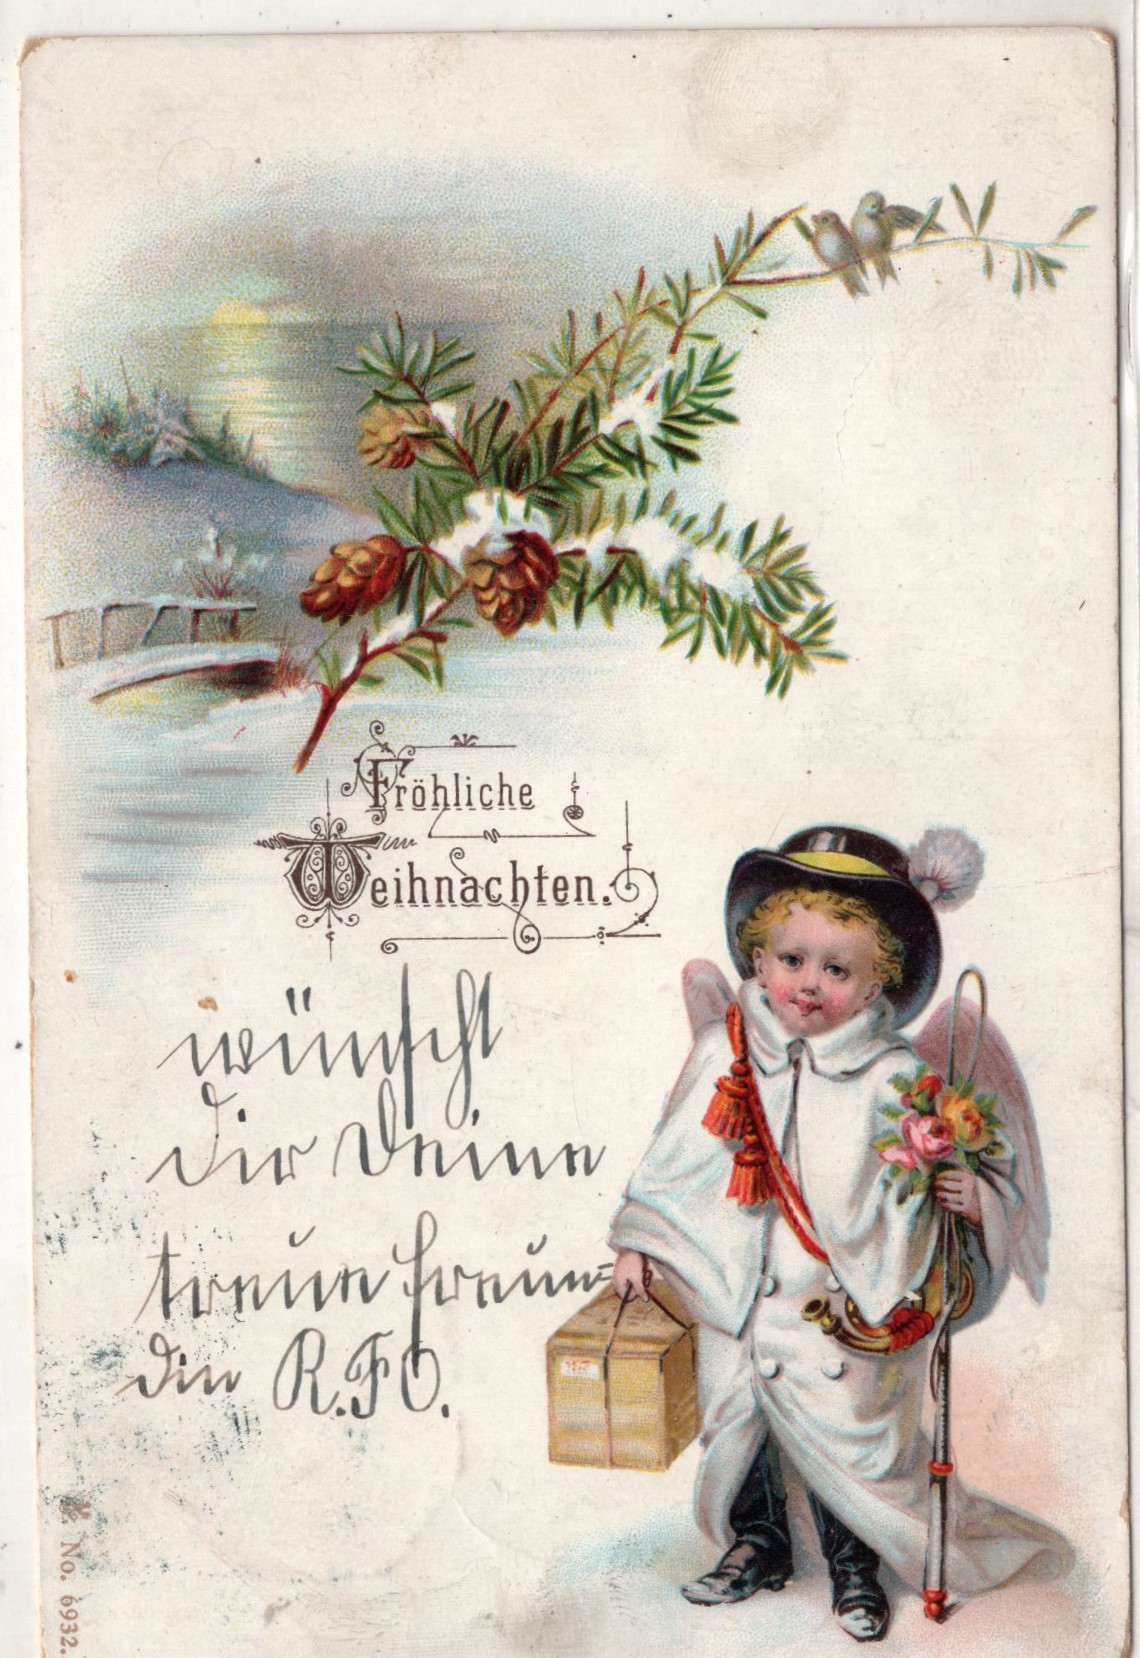 Fröhliche
Weihnachten.
wünscht
Dir Deine
treue Freun=
din R.F.O.
No. 6932.